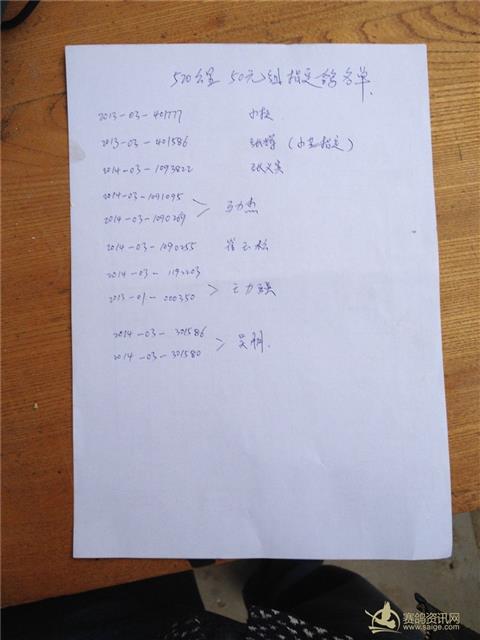 520公里 50元组指定鸽名单
2013-03-401777 小权
2013-03-401586 张辉（小某指定）
2014-03-1093822 张义英
2014-03-1091095
2014-03-1090269 > 马力杰
2014-03-1090255 崔玉松
2014-03-1192203
2013-01-000350 > 王力英
2014-03-301586
2014-03-301580 > 吴利
赛鸽资讯网
www.saige.com